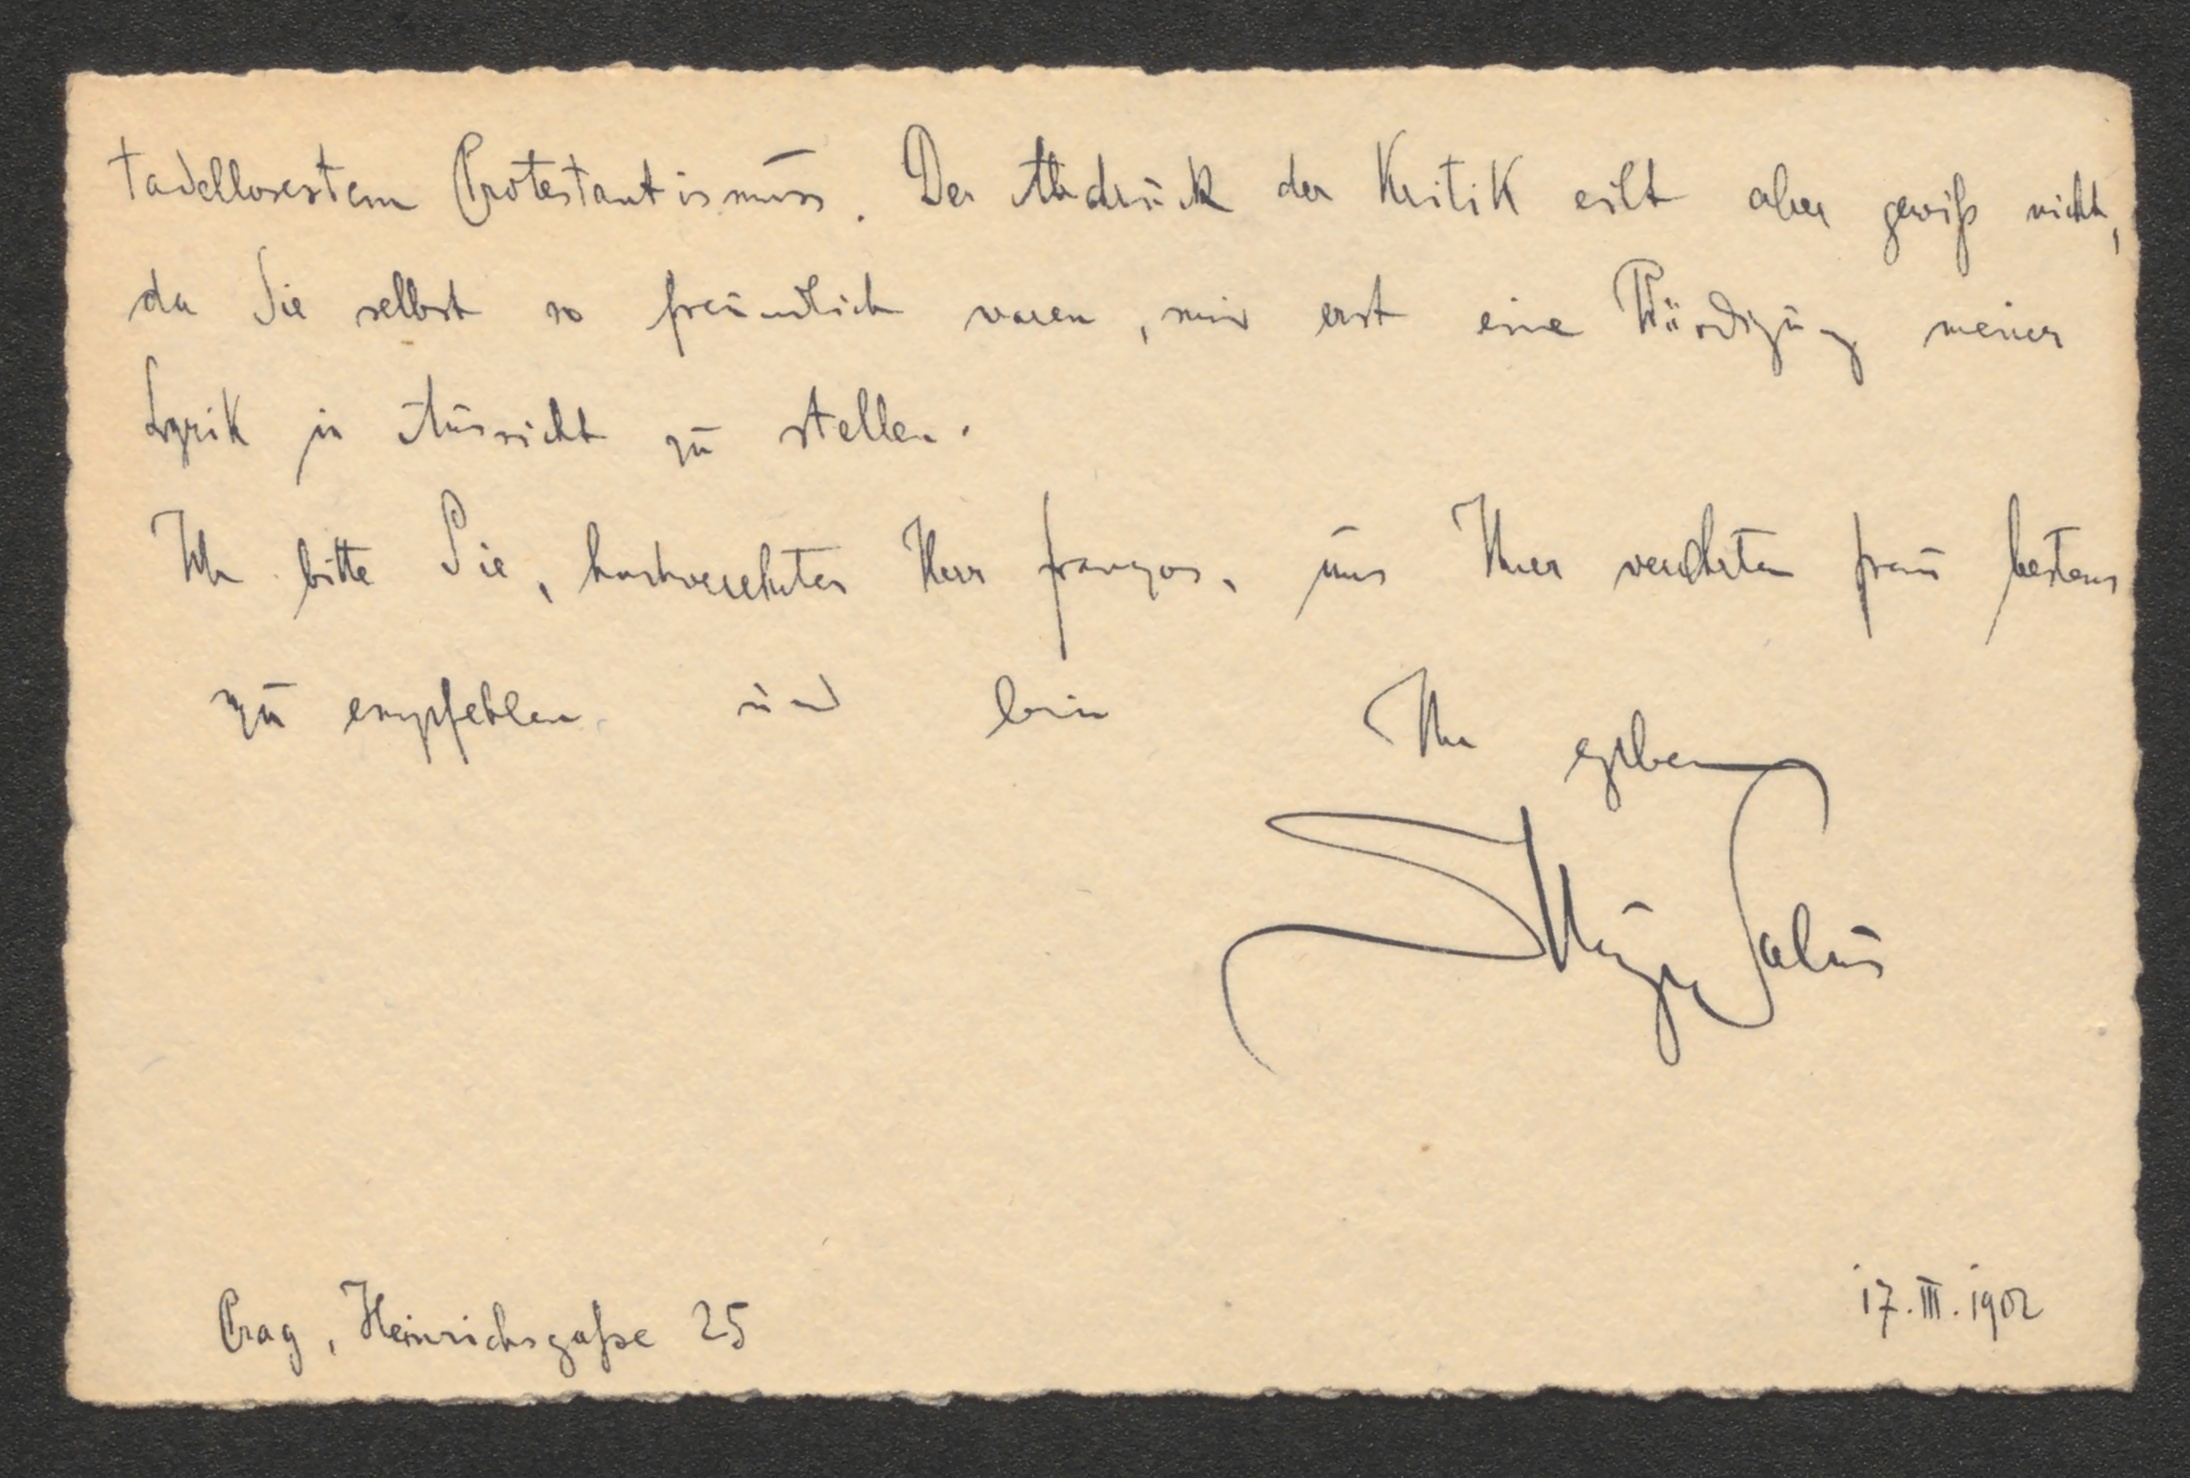 tadellosestem Protestantismus. Der Abdruck der Kritik eilt aber gewiß nicht,
da Sie selbst so freundlich waren, mir erst eine Würdigung meiner
Lyrik in Aussicht zu stellen.
Ich bitte Sie, hochverehrter Herr Franzos, uns Ihrer verehrten Frau bestens
zu empfehlen und bin Ihr ergebener
Hugo Salus
Prag, Heinrichsgaße 25
17. III. 1902